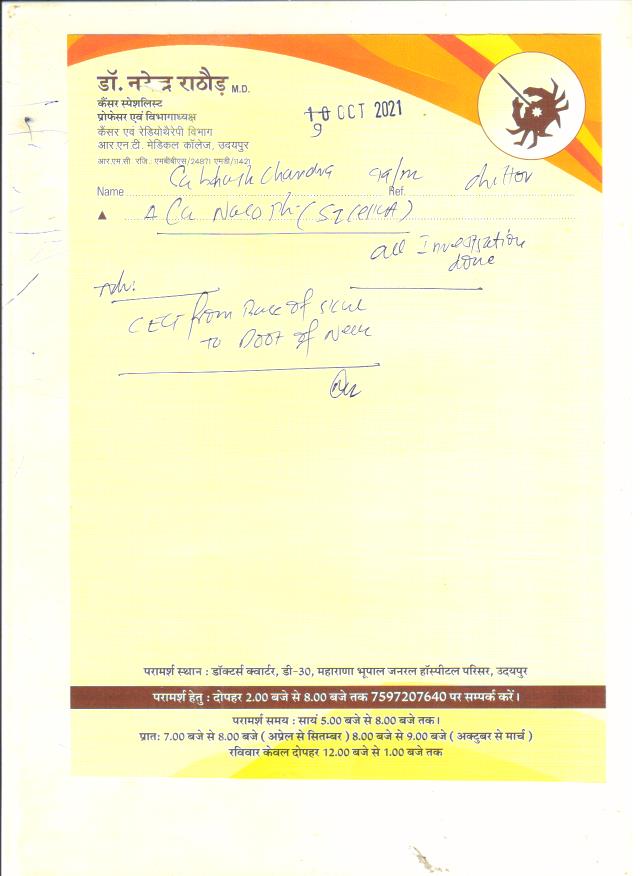 डॉ. नरेन्द्र राठौड़ M.D.
कैंसर स्पेशलिस्ट
प्रोफेसर एवं विभागाध्यक्ष
कैंसर एवं रेडियोथैरेपी विभाग
आर.एन.टी. मेडिकल कॉलेज, उदयपुर
आर.एम.सी रजि. एमबीबीएस/24871 एमडी/11421
10 OCT 2021
9
Name Chandra Ref. chittor
▲ Ca
all Investigation
done
Adv:
CECT from Base of skull
to Root of Neck
परामर्श स्थान : डॉक्टर्स क्वार्टर, डी-30, महाराणा भूपाल जनरल हॉस्पीटल परिसर, उदयपुर
परामर्श हेतु : दोपहर 2.00 बजे से 8.00 बजे तक 7597207640 पर सम्पर्क करें।
परामर्श समय : सायं 5.00 बजे से 8.00 बजे तक।
प्रातः 7.00 बजे से 8.00 बजे ( अप्रेल से सितम्बर ) 8.00 बजे से 9.00 बजे ( अक्टूबर से मार्च )
रविवार केवल दोपहर 12.00 बजे से 1.00 बजे तक